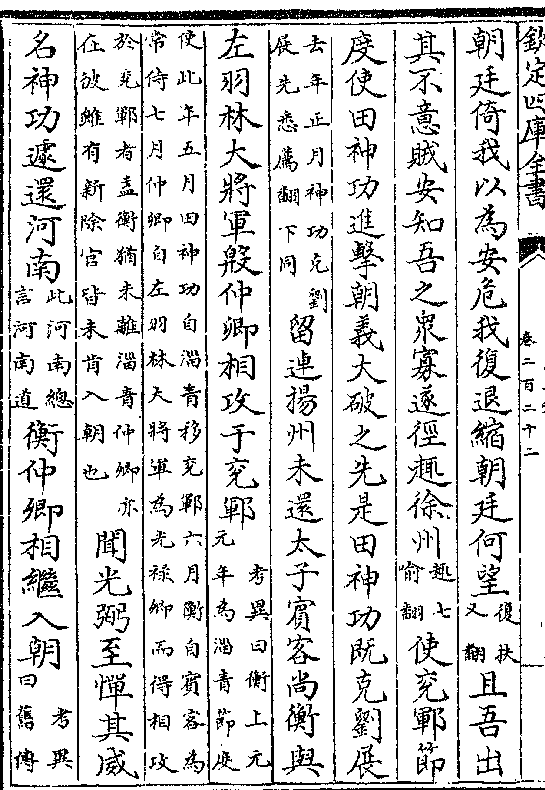 欽定四庫全書
卷二百二十二
朝廷倚我以為安危我復退縮朝廷何望復扶又翻且吾出
其不意賊安知吾之衆寡遂徑趣徐州趣七喻翻使兗鄆節
度使田神功進擊朝義大破之先是田神功既克劉展
去年正月神功克劉展先悉薦翻下同留連揚州未還太子賔客尚衡與
左羽林大將軍殷仲卿相攻于兗鄆考異曰衡上元元年為淄青節度
使此年五月田神功自淄青移兗鄆六月衡自賓客為常侍七月仲卿自左羽林大將軍為光禄卿而得相攻
於兗鄆者盖衡猶未離淄青仲卿亦在彼雖有新除官皆未肯入朝也聞光弼至憚其威
名神功遽還河南此河南總言河南道衡仲卿相繼入朝考異曰舊傳